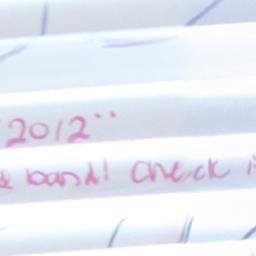 "2012"
band! check